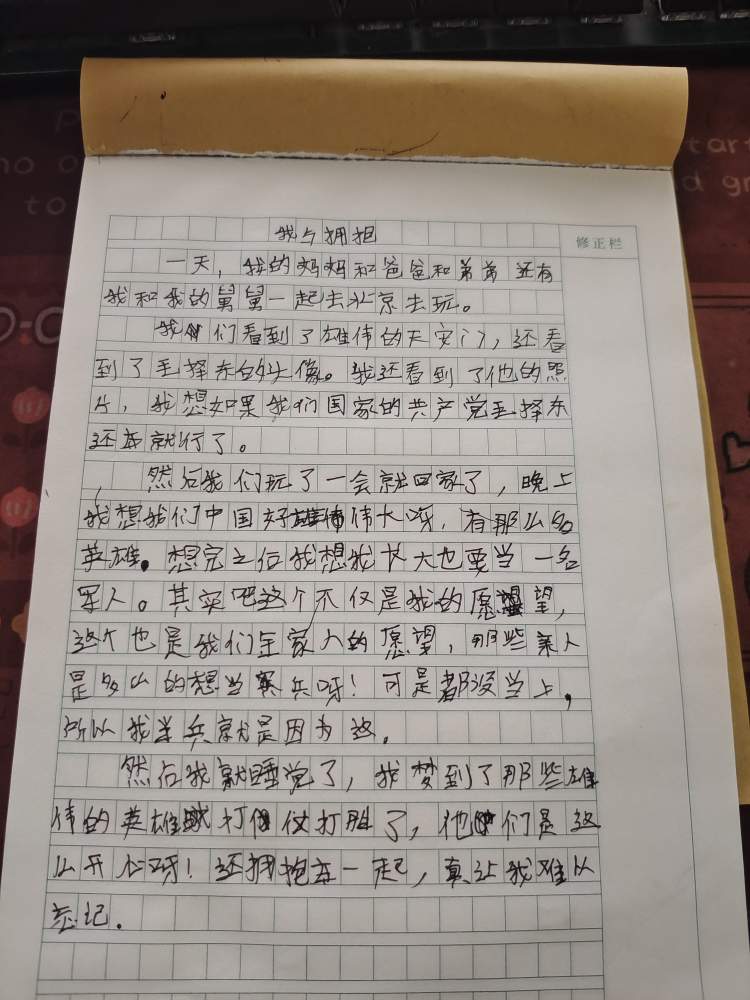 修正栏
我与拥抱
一天，我的妈妈和爸爸和弟弟还有
我和我的舅舅一起去北京去玩。
我们看到了雄伟的天安门，还看
到了毛择东的头像。我还看到了他的照
片，我想如果我们国家的共产党毛择东
还在就行了。
然后我们玩了一会就回家了，晚上
我想我们中国好伟大呀，有那么多
英雄。想完之后我想我长大也要当一名
军人。其实吧这个不仅是我的愿望，
这个也是我们全家人的愿望，那些亲人
是多么的想当兵呀！可是都没当上，
所以我当兵就是因为这。
然后我就睡觉了，我梦到了那些雄
伟的英雄打仗打胜了，他们是这
么开心呀！还拥抱在一起，真让我难以
忘记。